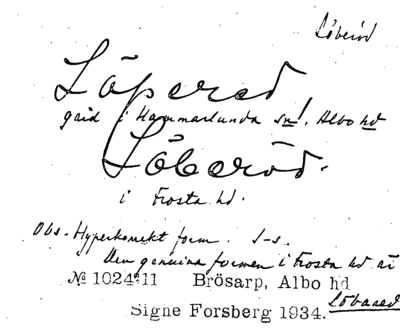 Löberöd
Löpered
gård i Hammarlunda sn!, Albo hd
Löberöd.
i Frosta hd.
Obs. Hyperkorrekt form. S-s.
Den genuina formen i Frosta hd är
Löbared
№ 1024:11 Brösarp, Albo hd
Signe Forsberg 1934.